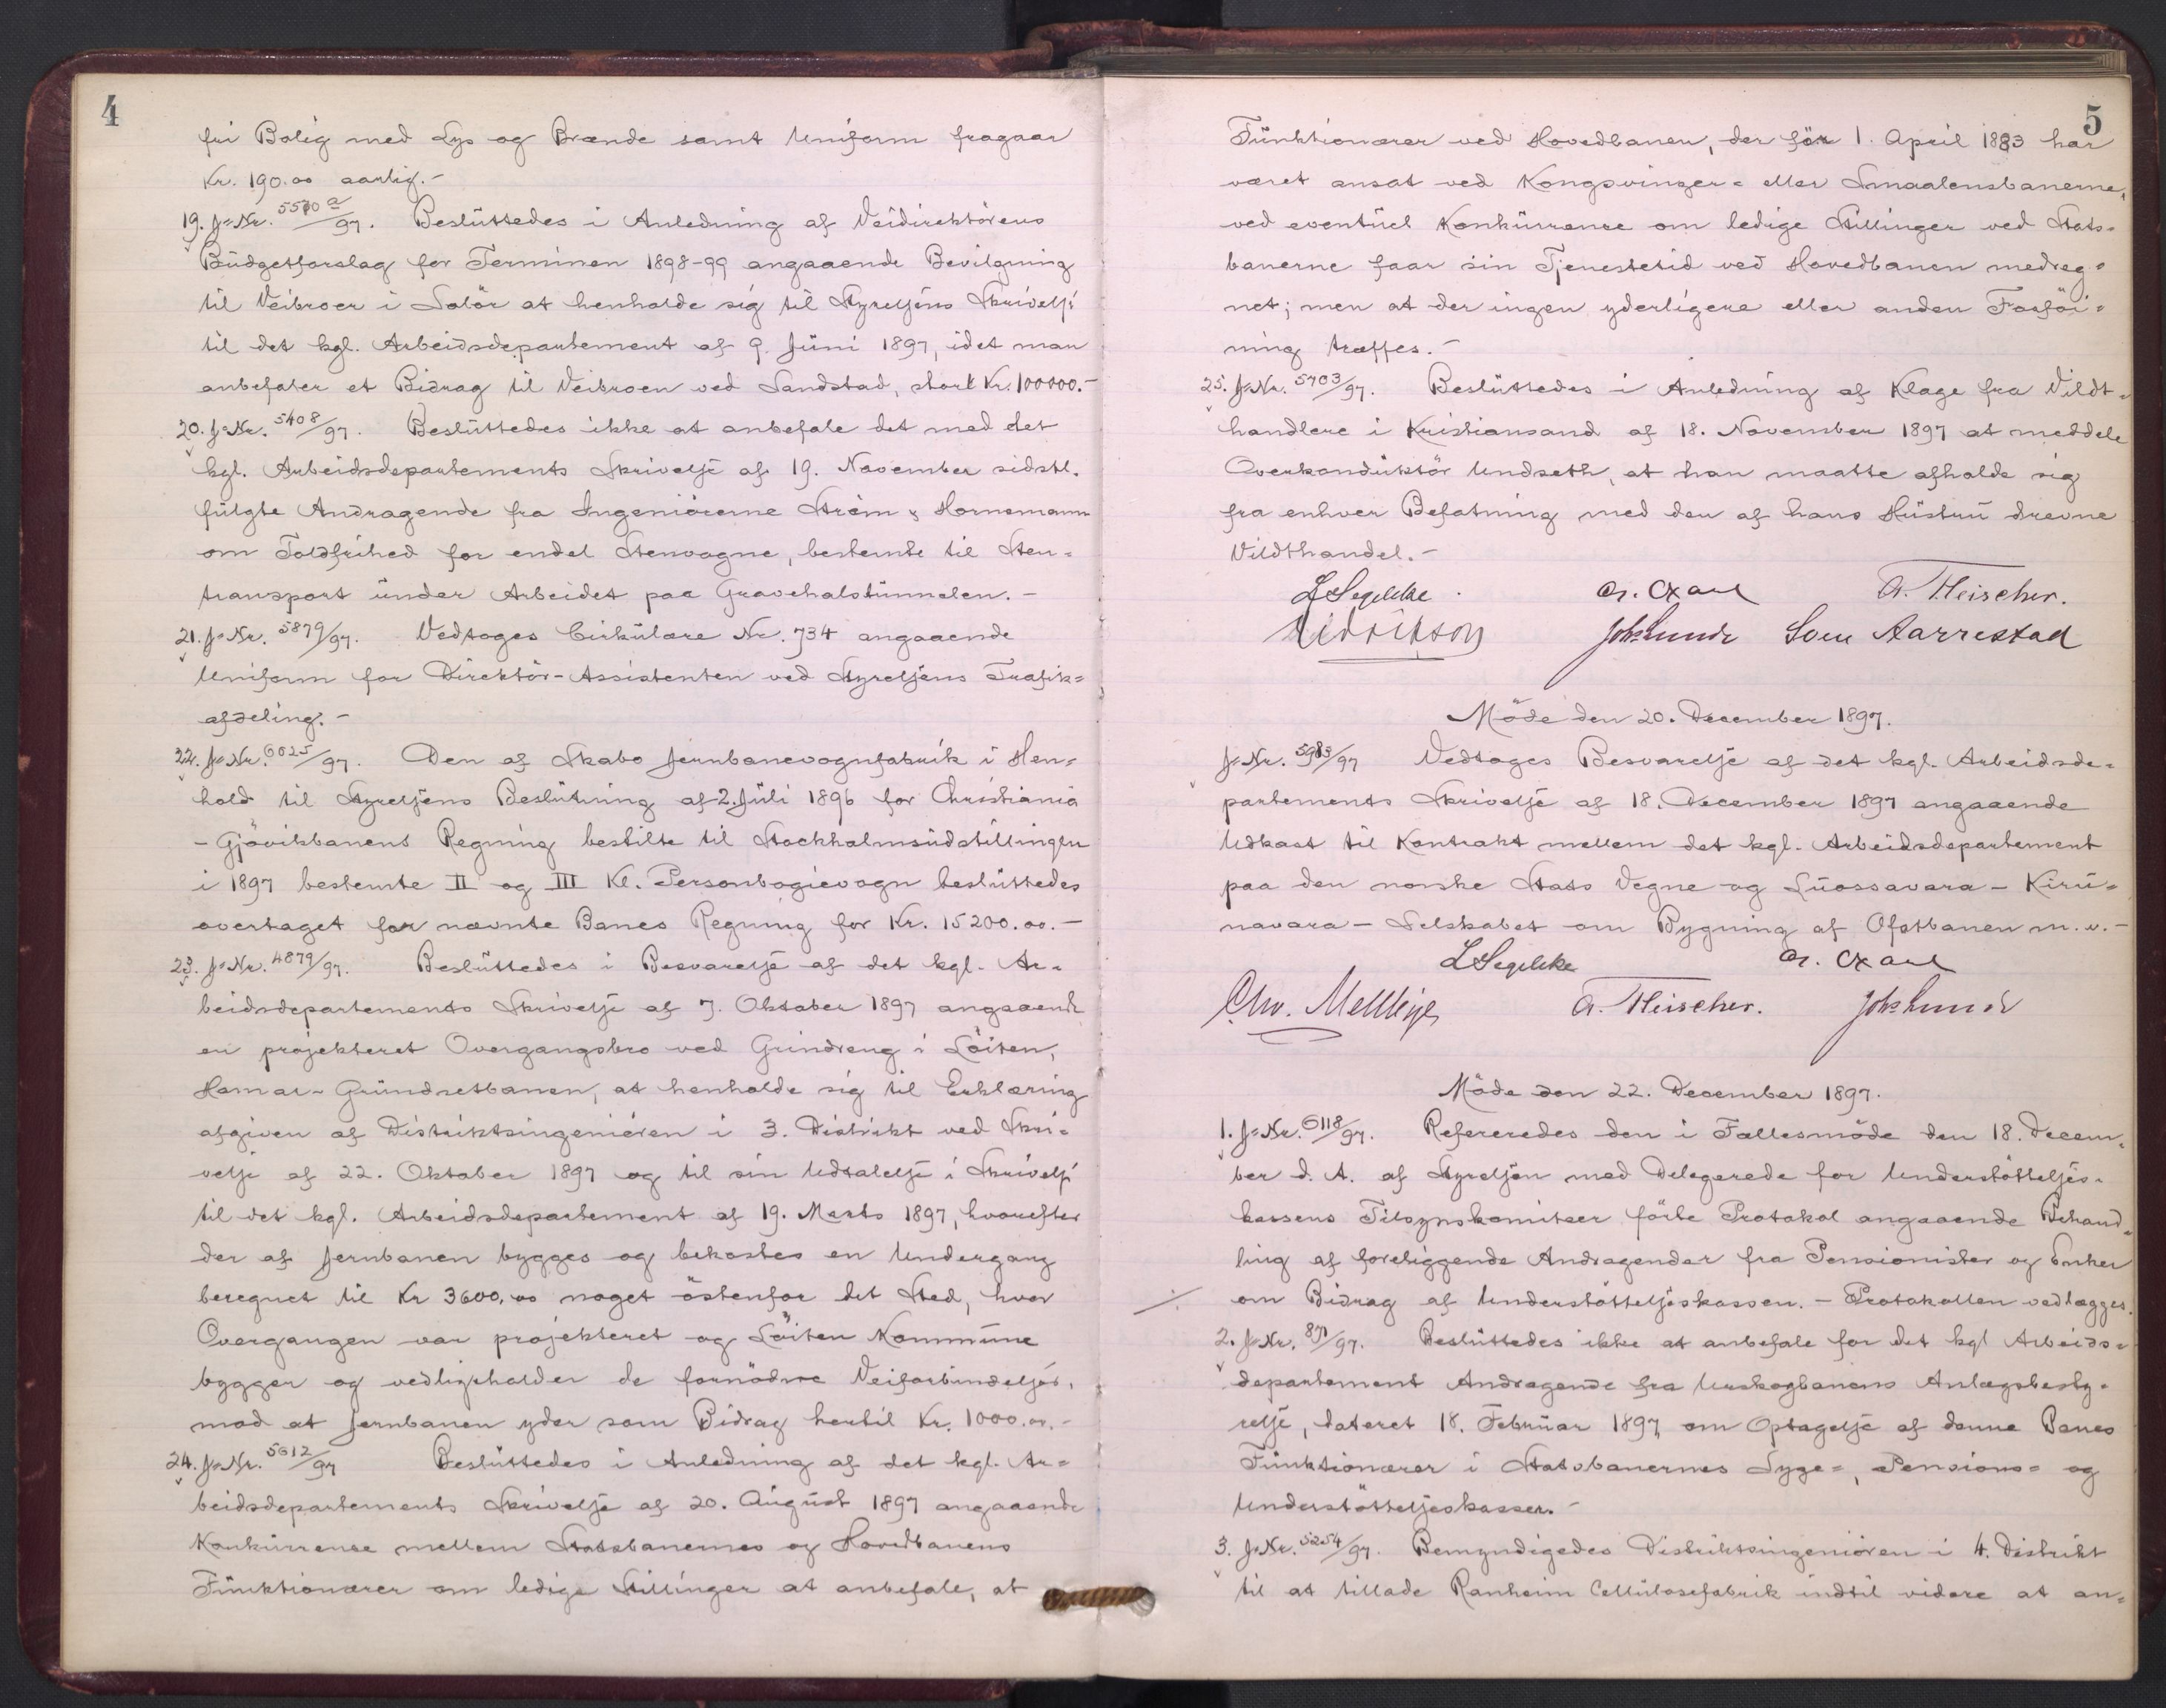 4
fri Bolig med Lys og Brænde samt Uniform fragaar
Kr. 190.00 aarlig.-
19. J=Nr. 5570 a/97. Beslüttedes i Anledning af Veidirektörens
Büdgetforslag for Terminen 1898-99 angaaende Bevilgning
til Veibroer i Solör at henholde sig til Styrelsens Skrivelse
til det kgl. Arbeidsdepartement af 9. Jüni 1897, idet man
anbefaler et Bidrag til Veibroen ved Sandstad, stort Kr. 100000.-
20. J=Nr. 5408/97. Beslüttedes ikke at anbefale det med det
kgl. Arbeidsdepartements Skrivelse af 19. November sidstl.
fülgte Andragende fra Ingeniörerne Ström & Hornemann
om Toldfrihed for endel Stenvogne, bestemte til Sten=
transport ünder Arbeidet paa Gravehalstünnelen.-
21. J=Nr. 5879/97. Vedtoges Cirkülære Nr. 734 angaaende
Uniform for Direktör-Assistenten ved Styrelsens Trafik=
afdeling.-
22. J=Nr. 6025/97. Den af Skabo Jernbanevognfabrik i Hen=
hold til Styrelsens Beslütning af 2. Jüli 1896 for Christiania
-Gjövikbanens Regning bestilte til Stockholmsüdstillingen
i 1897 bestemte II og III Kl. Personbogievogn beslüttedes
overtaget for nævnte Banes Regning for Kr. 15200.00.-
23. J=Nr. 4879/97. Beslüttedes i Besvarelse af det kgl. Ar=
beidsdepartements Skrivelse af 7. Oktober 1897 angaaende
en projekteret Overgangsbro ved Grindeng i Löiten,
Hamar-Gründsetbanen, at henholde sig til Erklæring
afgiven af Distriktsingeniören i 3. Distrikt ved Skri=
velse af 22. Oktober 1897 og til sin Udtalelse i Skrivelse
til det kgl. Arbeidsdepartement af 19. Marts 1897, hvorefter
der af Jernbanen bygges og bekostes en Undergang
beregnet til Kr 3600,00 noget östenfor det Sted, hvor
Overgangen var projekteret og Löiten Kommüne
bygger og vedligeholder de fornödne Veiforbindelser,
mod at Jernbanen yder som Bidrag hertil Kr. 1000.00.-
24. J=Nr. 5612/97 Beslüttedes i Anledning af det kgl. Ar=
beidsdepartements Skrivelse af 20. Aügust 1897 angaaende
Konkürrense mellem Statsbanernes og Hovedbanens
Fünktionærer om ledige Stillinger at anbefale, at
5
Fünktionærer ved Hovedbanen, der för 1. April 1883 har
været ansat ved Kongsvinger= eller Smaalensbanerne,
ved eventüel Konkürrense om ledige Stillinger ved Stats=
banerne faar sin Tjenestetid ved Hovedbanen medreg=
net; men at der ingen yderligere eller anden Forföi=
ning træffes.-
25. J=Nr. 5703/97. Beslüttedes i Anledning af Klage fra Vildt=
handlere i Kristiansand af 18. November 1897 at meddele
Overkondüktör Undseth, at han maatte afholde sig
fra enhver Befatning med den af hans Hüstrü drevne
Vildthandel.-
LSegelcke. A. Fleischer.
JohsLunde Sven Aarrestad
Möde den 20. December 1897.
J=Nr. 5983/97 Vedtoges Besvarelse af det kgl. Arbeidsde=
partements Skrivelse af 18. December 1897 angaaende
Udkast til Kontrakt mellem det kgl. Arbeidsdepartement
paa den norske Stats Vegne og Lüossavara-Kirü=
navara-Selskabet om Bygning af Ofotbanen m.v.-
LSegelcke
A. Fleischer. JohsLunde
Möde den 22. December 1897.
1. J=Nr. 6118/97. Refereredes den i Fællesmöde den 18. Decem=
ber d. A. af Styrelsen med Delegerede for Understöttelses=
kassens Tilsynskomiteer förte Protokol angaaende Behand=
ling af foreliggende Andragender fra Pensionister og Enker
om Bidrag af Understöttelseskassen.- Protokollen vedlægges.
2. J=Nr. 871/97. Beslüttedes ikke at anbefale for det kgl Arbeids=
departement Andragende fra Urskogbanens Anlægsbesty=
relse, dateret 18. Februar 1897, om Optagelse af denne Banes
Fünktionærer i Statsbanernes Syge=, Pensions= og
Understöttelseskasser.-
3. J=Nr. 5254/97. Bemyndigedes Distriktsingeniören i 4. Distrikt
til at tillade Ranheim Cellülosefabrik indtil videre at an=